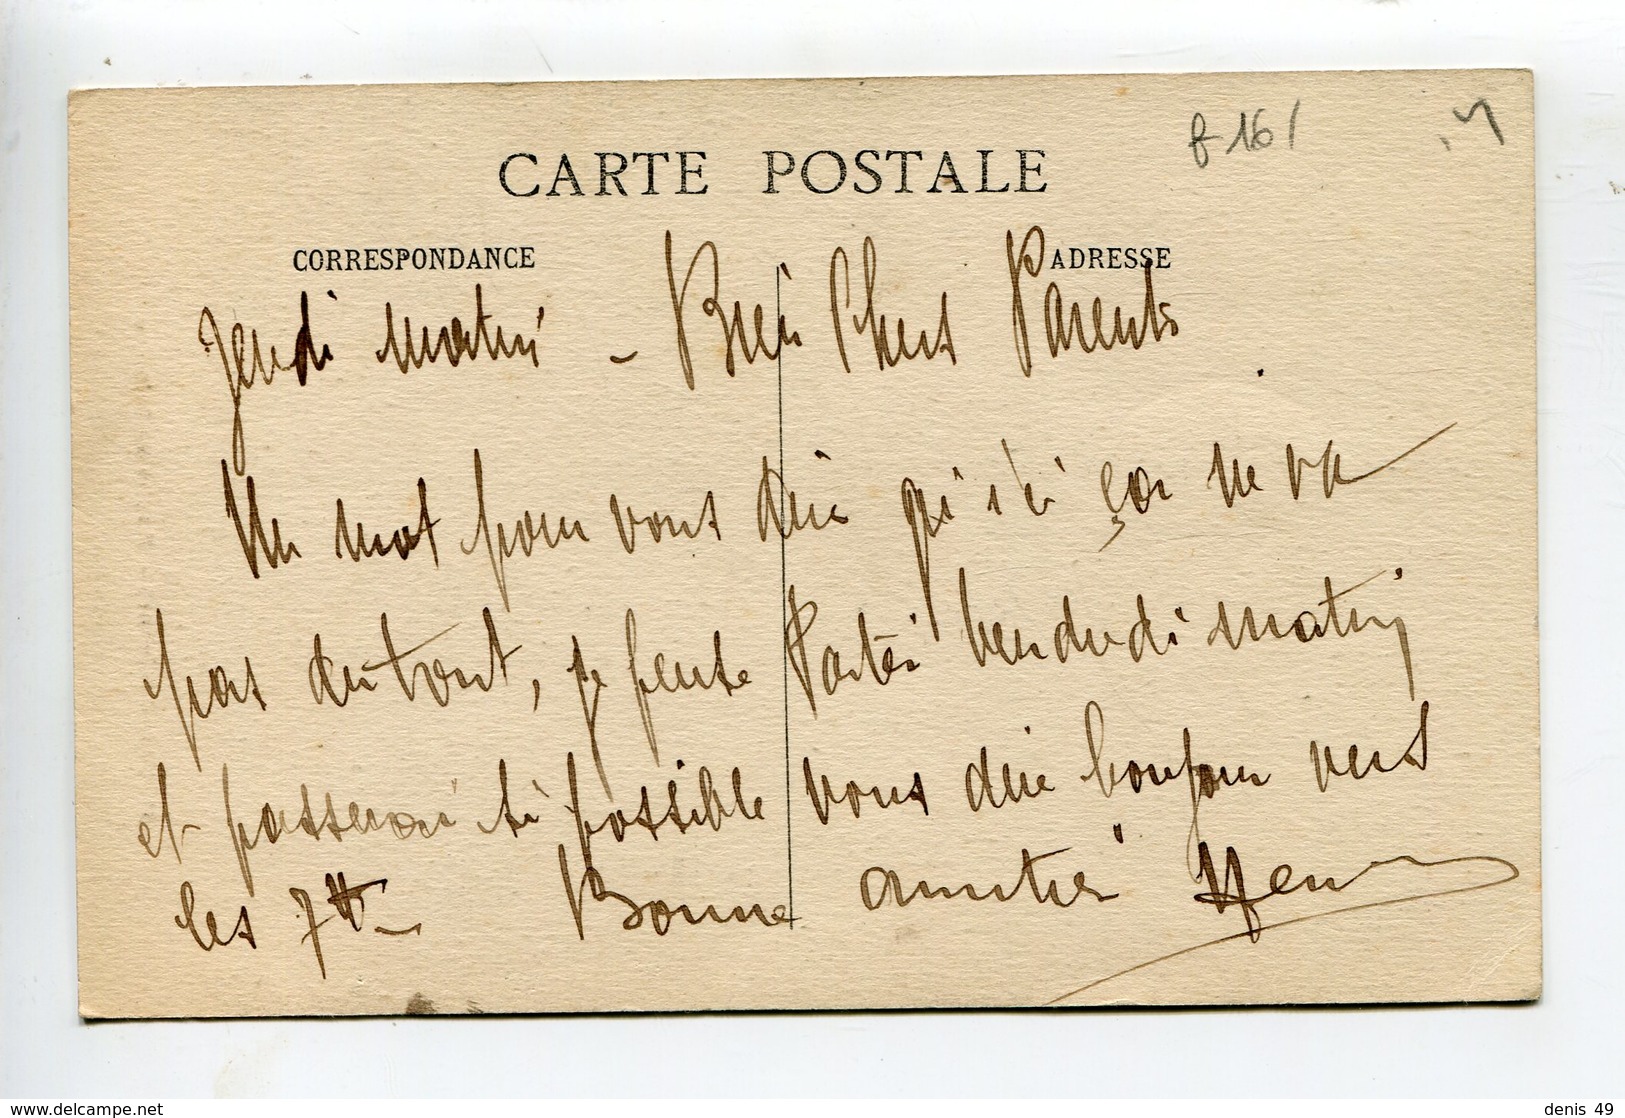 B-16/
CARTE POSTALE
CORRESPONDANCE ADRESSE
Jeudi matin - Bien Chers Parents
Un mot pour vous dire qu'ici ça ne va
pas du tout, je pense Partir vendredi matin
et passerai si possible vous dire bonjour vers
les 7h - Bonne amitié Henri
www.delcampe.net
denis_49